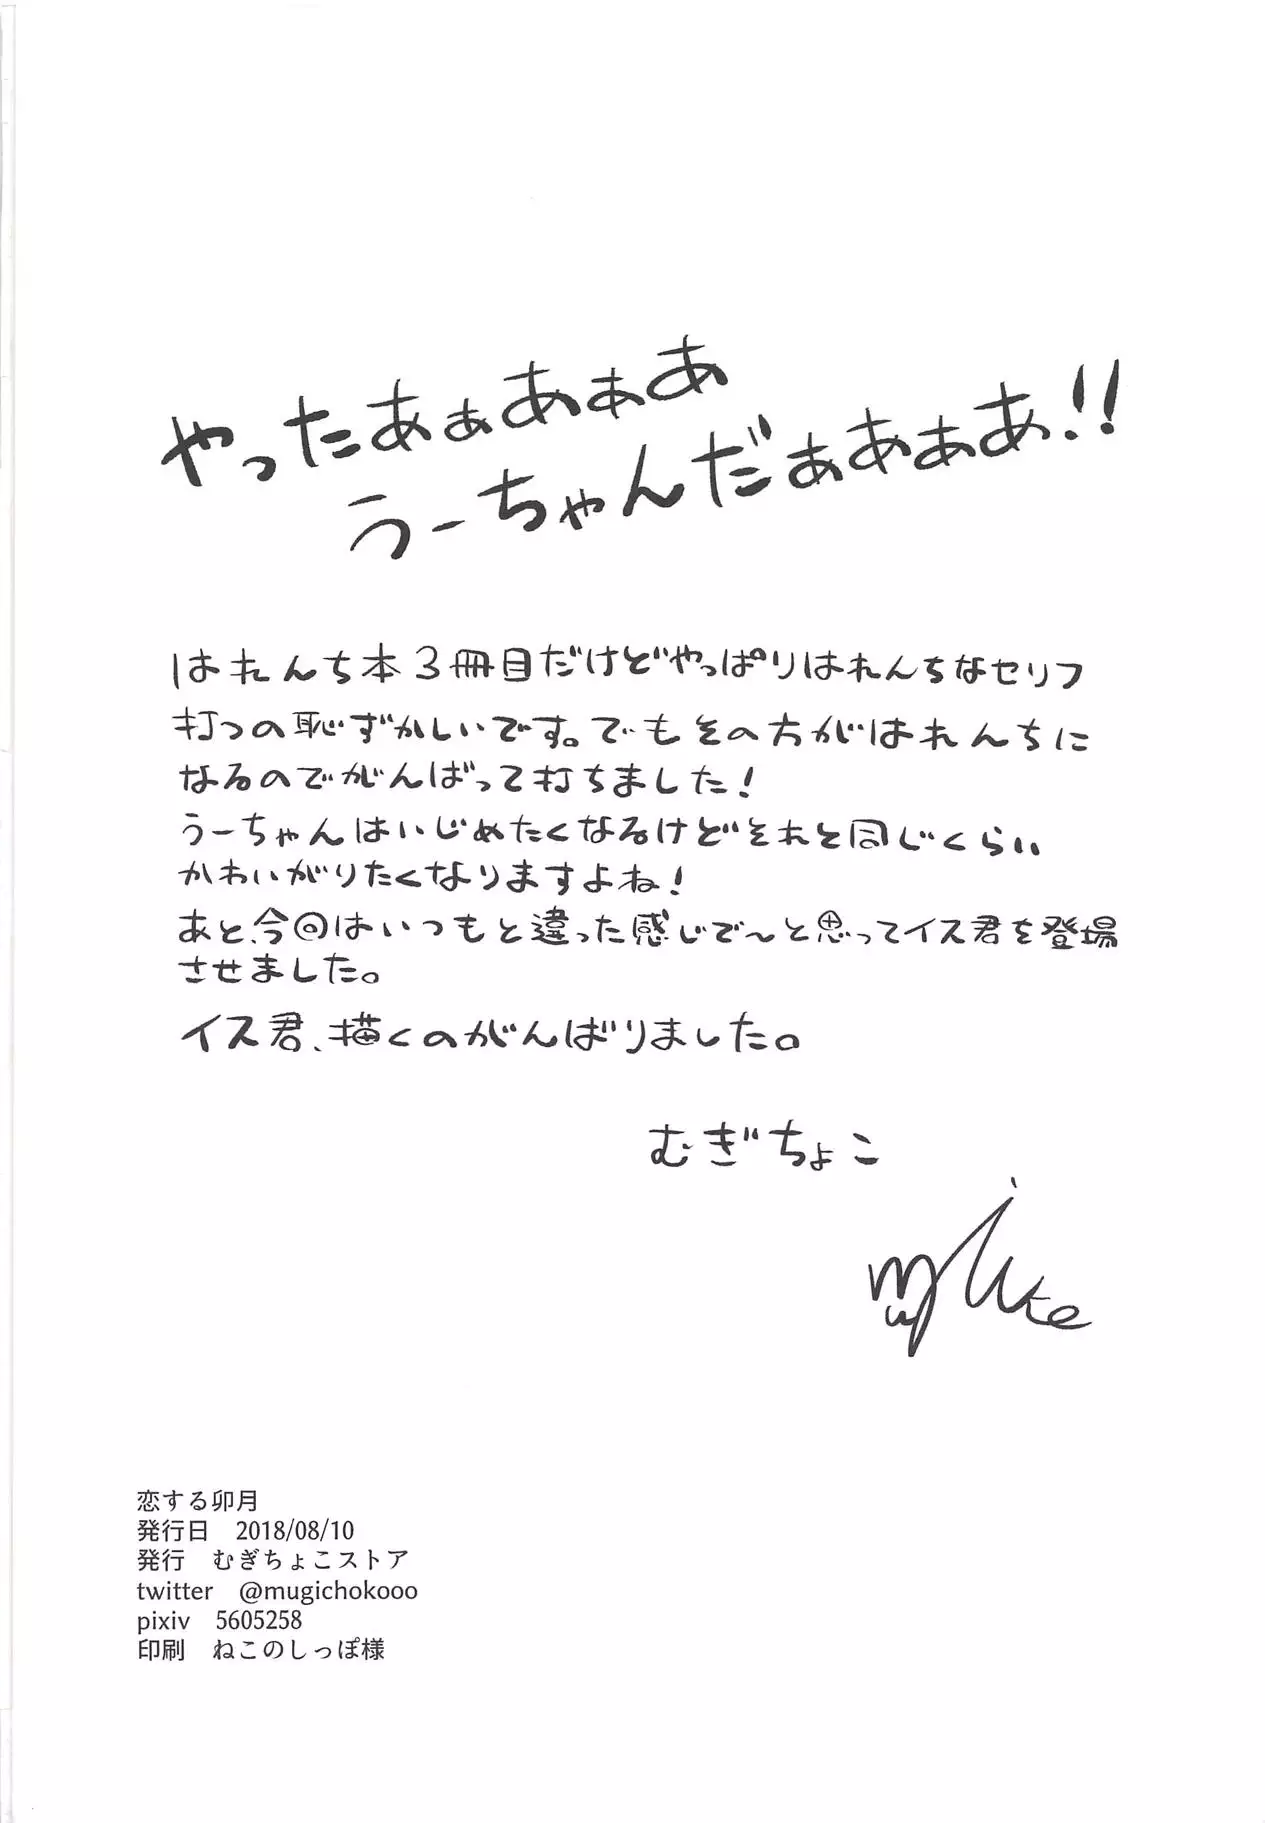 やったあぁあぁあ
うーちゃんだぁあぁあ!!
はれんち本3冊目だけどやっぱりはれんちなセリフ
打つの恥ずかしいです。でもその方がはれんちに
なるのでがんばって打ちました!
うーちゃんはいじめたくなるけどそれと同じくらい
かわいがりたくなりますよね!
あと、今回はいつもと違った感じで〜と思ってイス君を登場
させました。
イス君、描くのがんばりました。
むぎちょこ
恋する卯月
発行日 2018/08/10
発行 むぎちょこストア
twitter @mugichokooo
pixiv 5605258
印刷 ねこのしっぽ様